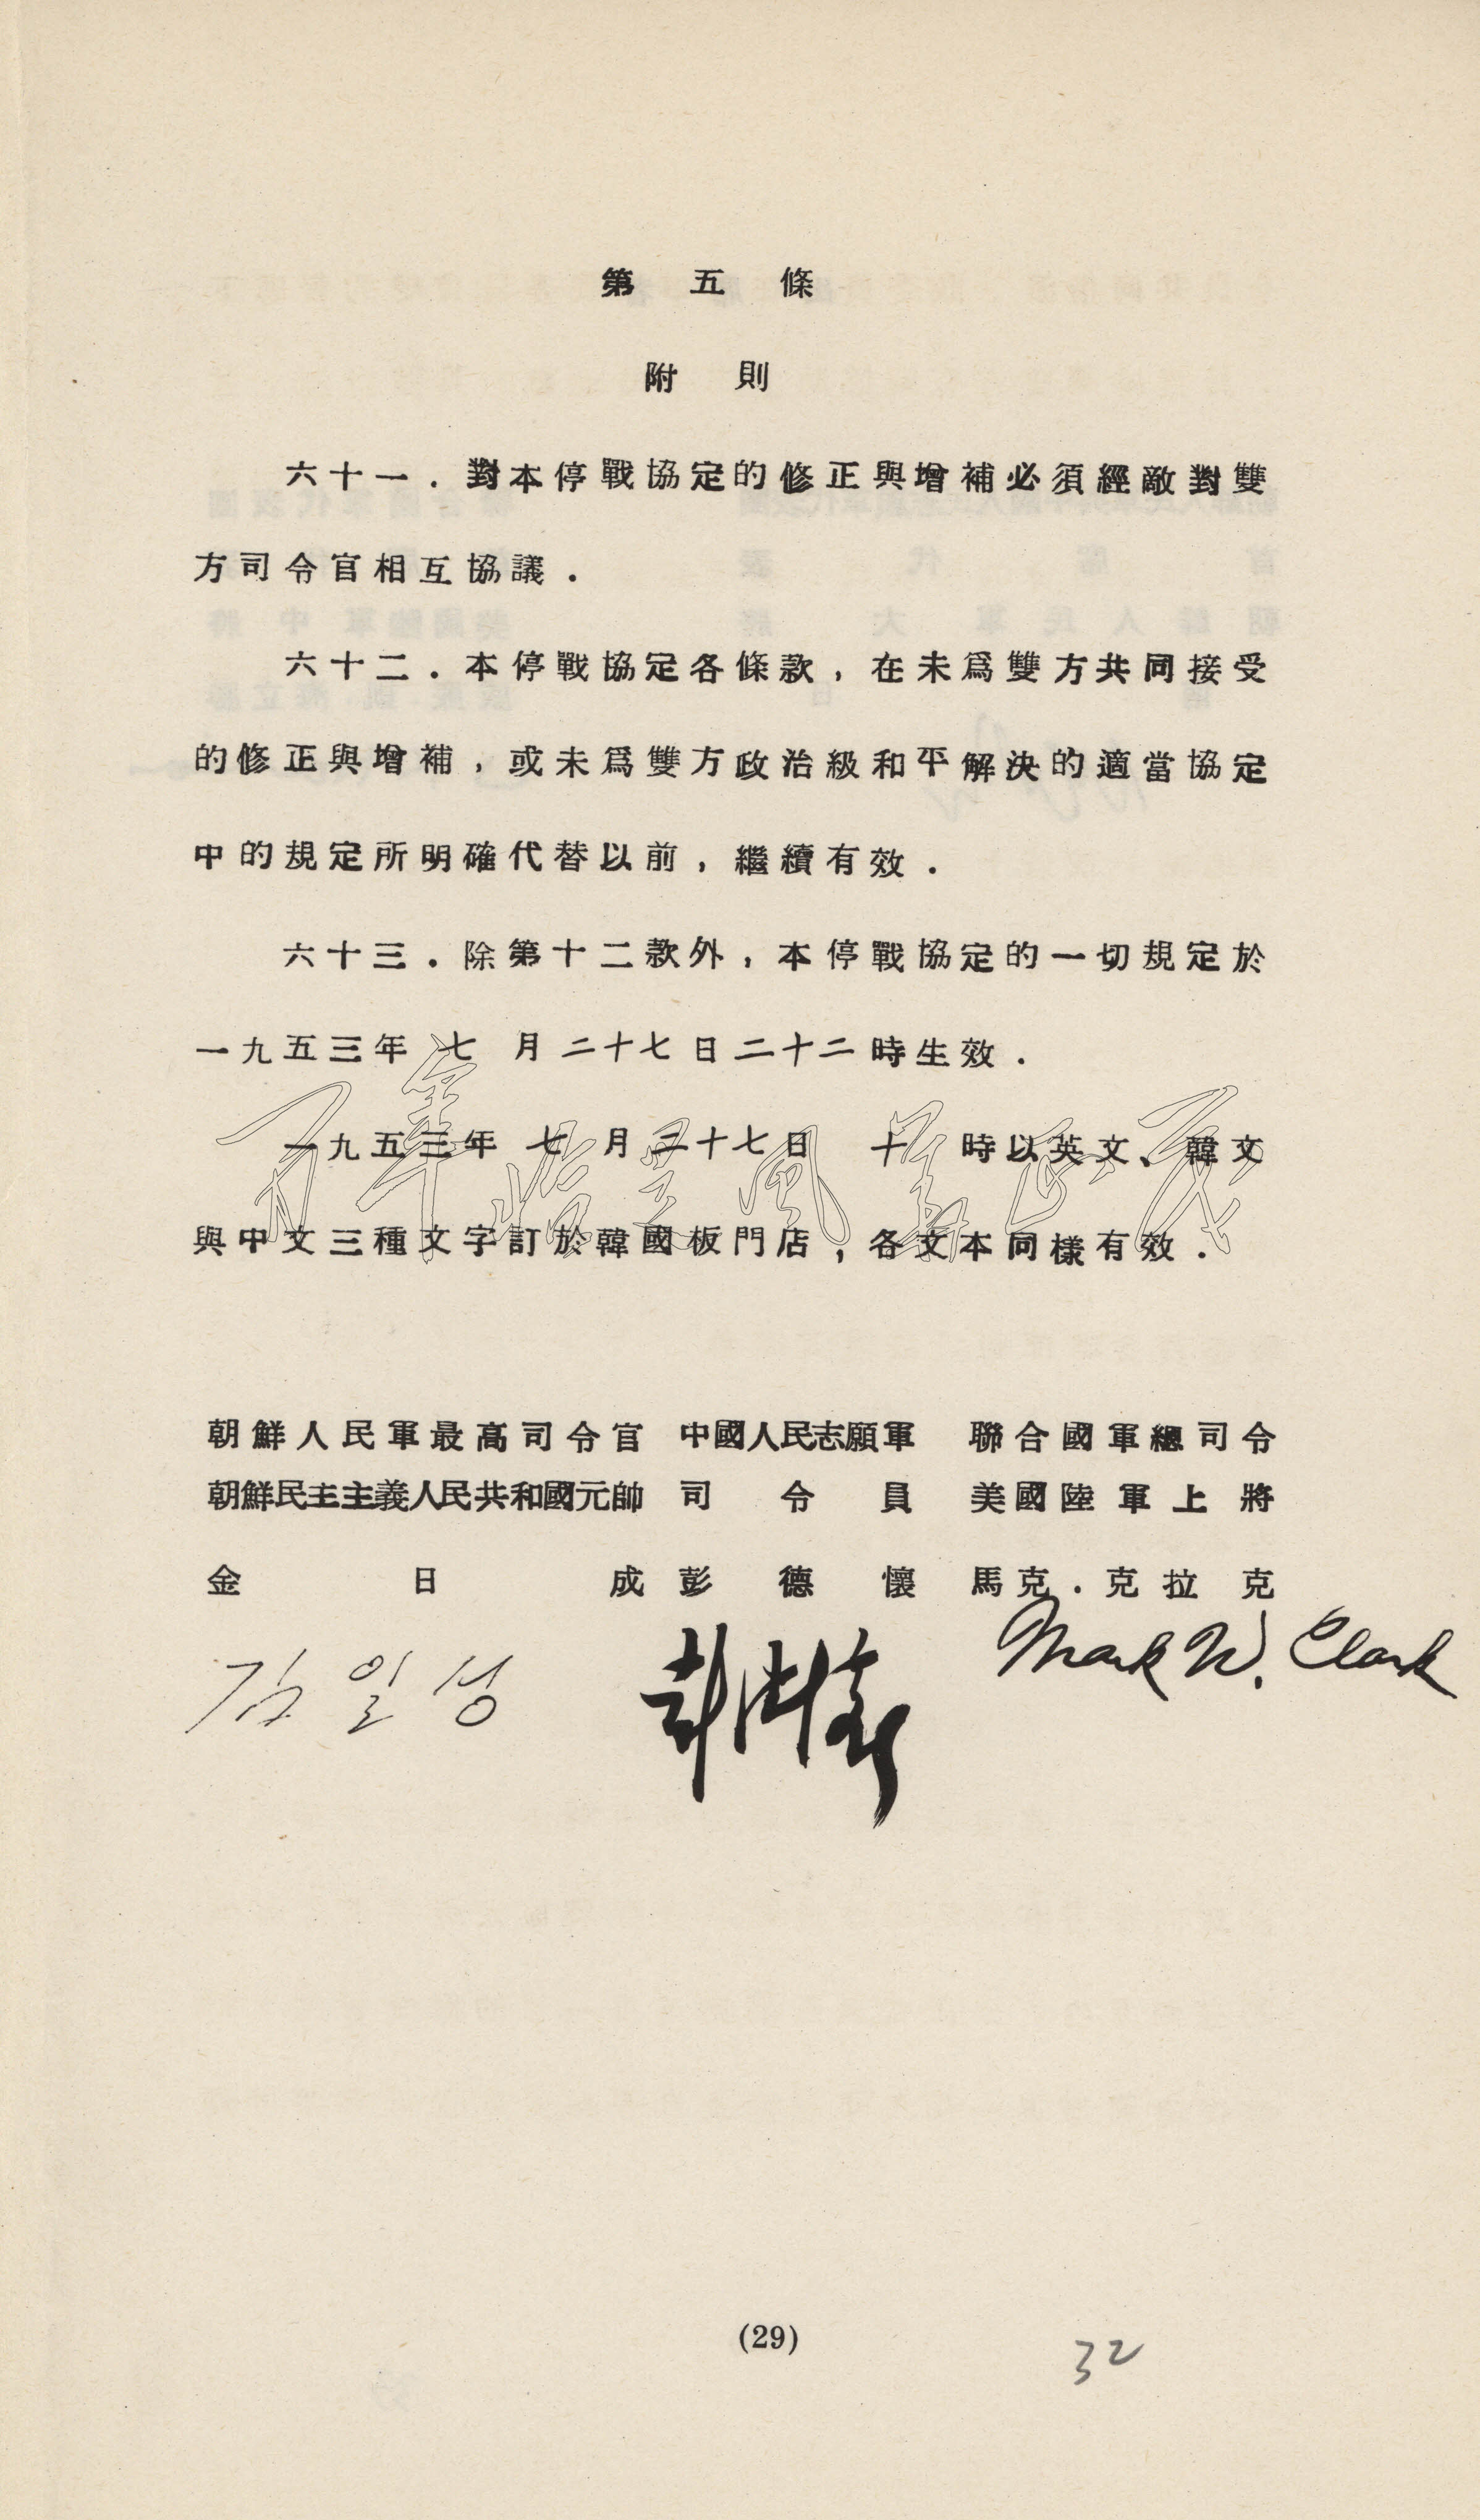 第五條
附則
六十一．對本停戰協定的修正與增補必須經敵對雙
方司令官相互協議．
六十二．本停戰協定各條款，在未爲雙方共同接受
的修正與增補，或未爲雙方政治級和平解決的適當協定
中的規定所明確代替以前，繼續有效．
六十三．除第十二款外，本停戰協定的一切規定於
一九五三年七月二十七日二十二時生效．
一九五三年七月二十七日十時以英文、韓文
與中文三種文字訂於韓國板門店，各文本同樣有效．
朝鮮人民軍最高司令官 中國人民志願軍 聯合國軍總司令
朝鮮民主主義人民共和國元帥 司令員 美國陸軍上將
金日成 彭德懷 馬克．克拉克
김일성 彭德懷 Mark W. Clark
(29)
32